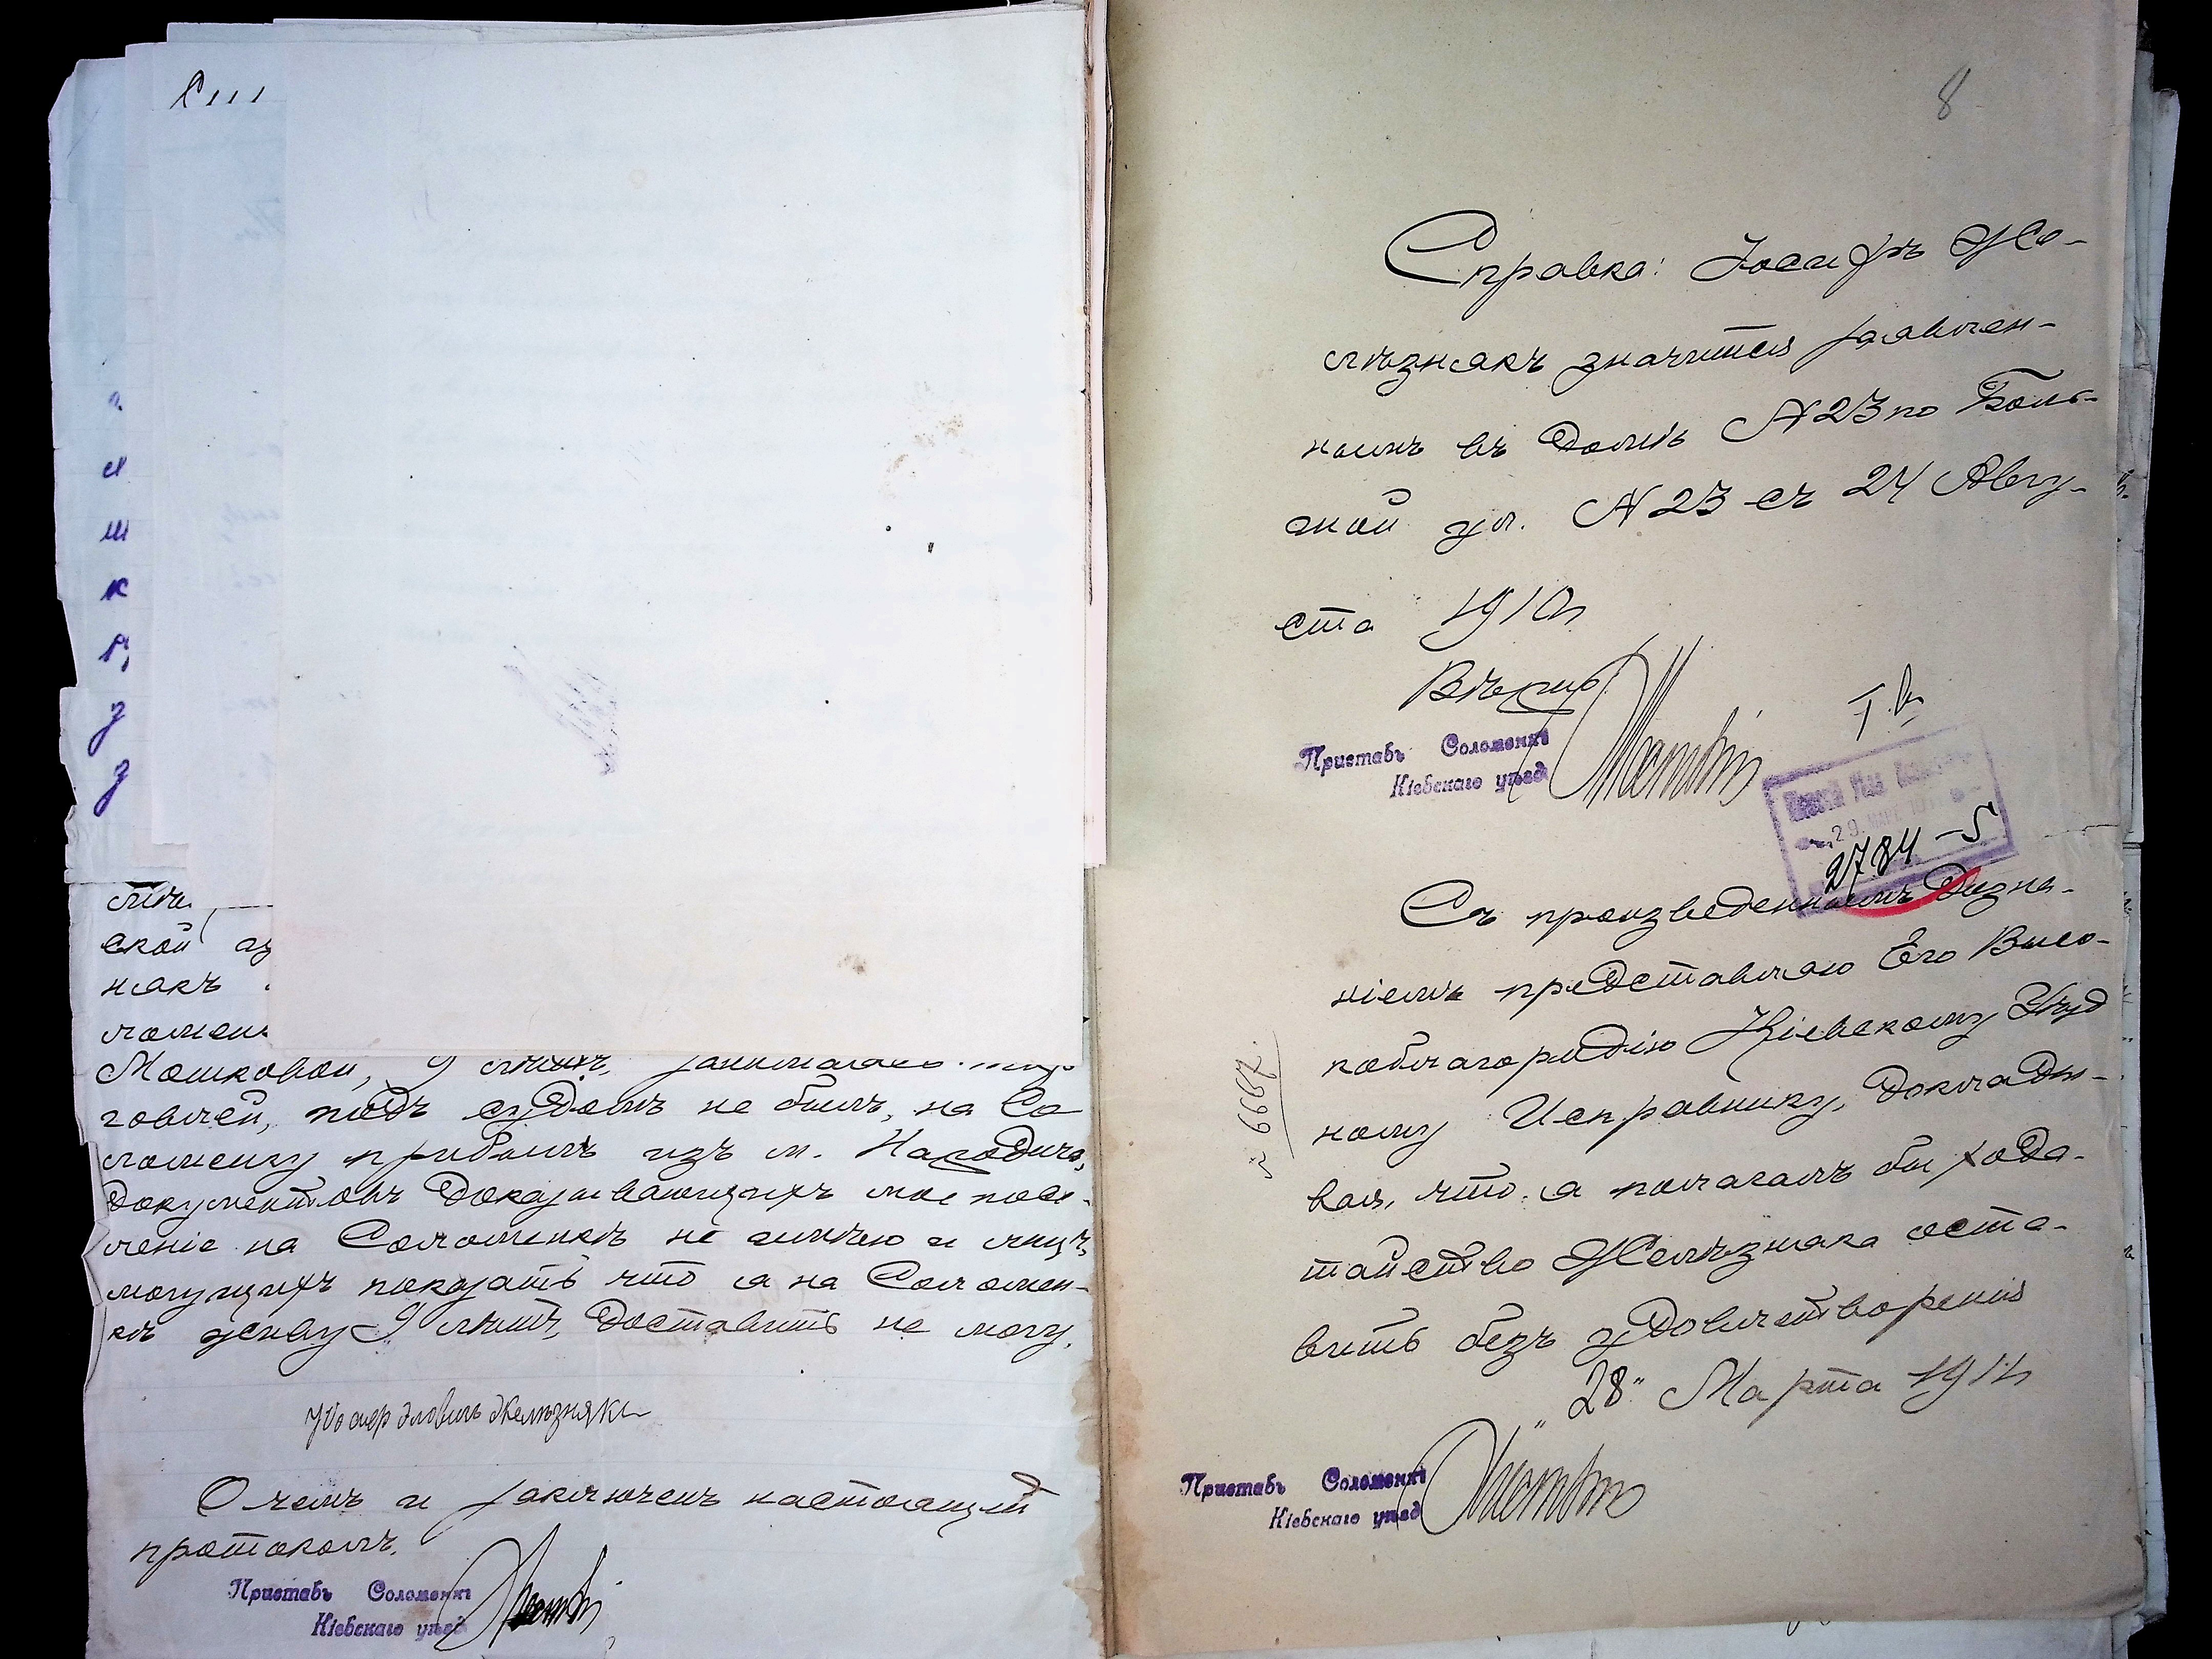 а
ш
к
з
з
ской
някъ
Мошковой, 9 лѣтъ, занимаюсь тор
говлей, подъ судомъ не былъ, на Со
ломенку прибылъ изъ м. Народичъ,
документовъ доказывающихъ мое посе-
леніе на Соломенкѣ не имѣю и лицъ,
могущихъ показать что я на Соломен-
кѣ живу 9 лѣтъ, доставить не могу.
Желѣзнякъ
О чемъ и заключенъ настоящій
протоколъ.
Приставъ Соломенки
Кіевскаго уѣзд
8
Справка: Іосифъ Же-
лѣзнякъ значится заявлен-
нымъ въ домѣ N 23 по Боль-
шой ул. N 23 съ 24 Авгу-
ста 1910 г.
Вѣрно
Приставъ Соломенки
Кіевскаго уѣзд
29
2784 - 5
Съ произведеннымъ дозна-
ніемъ представляю Его Высо-
коблагородію Кіевскому Уѣзд
ному Исправнику, доклады-
вая, что я полагалъ бы хода-
тайство Желѣзняка оста-
вить безъ удовлетворенія
"28" Марта 1911 г.
N 6667.
Приставъ Соломенки
Кіевскаго уѣзд